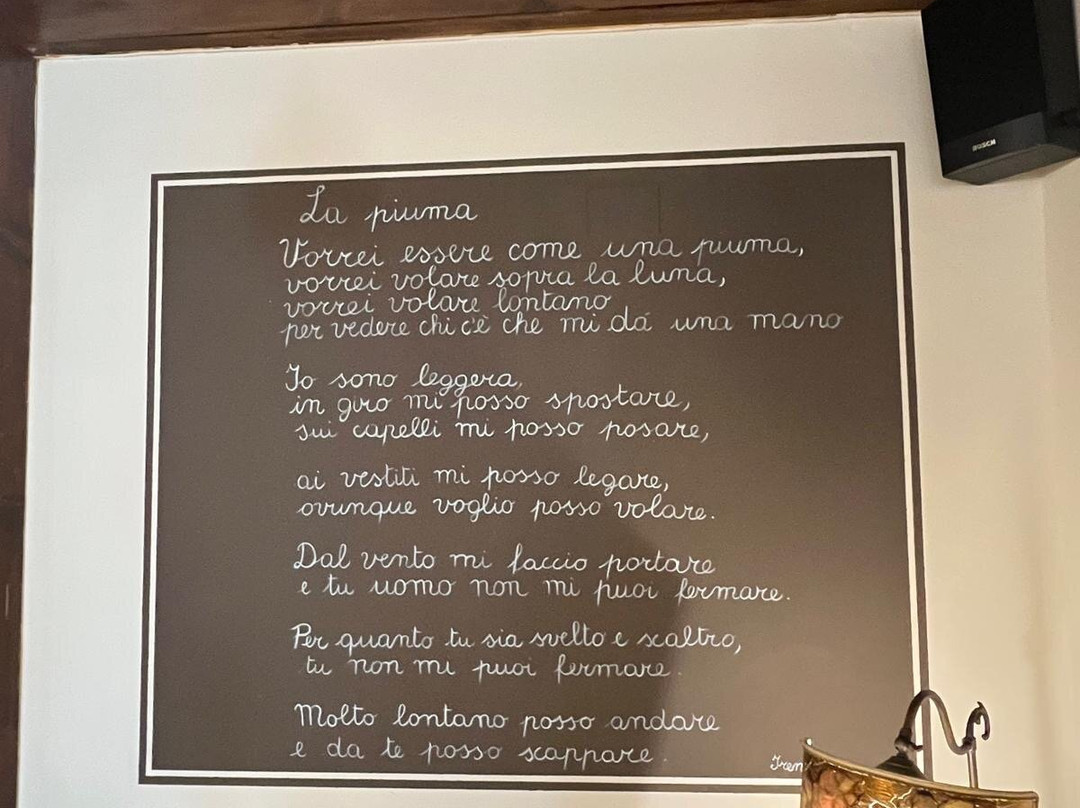 La piuma
Vorrei essere come una piuma,
vorrei volare sopra la luna,
vorrei volare lontano
per vedere chi c'è che mi dá una mano
Io sono leggera,
in giro mi posso spostare,
sui capelli mi posso posare,
ai vestiti mi posso legare,
ovunque voglio posso volare.
Dal vento mi faccio portare
e tu uomo non mi puoi fermare.
Per quanto tu sia svelto e scaltro,
tu non mi puoi fermare.
Molto lontano posso andare
e da te posso scappare.
BOSCH